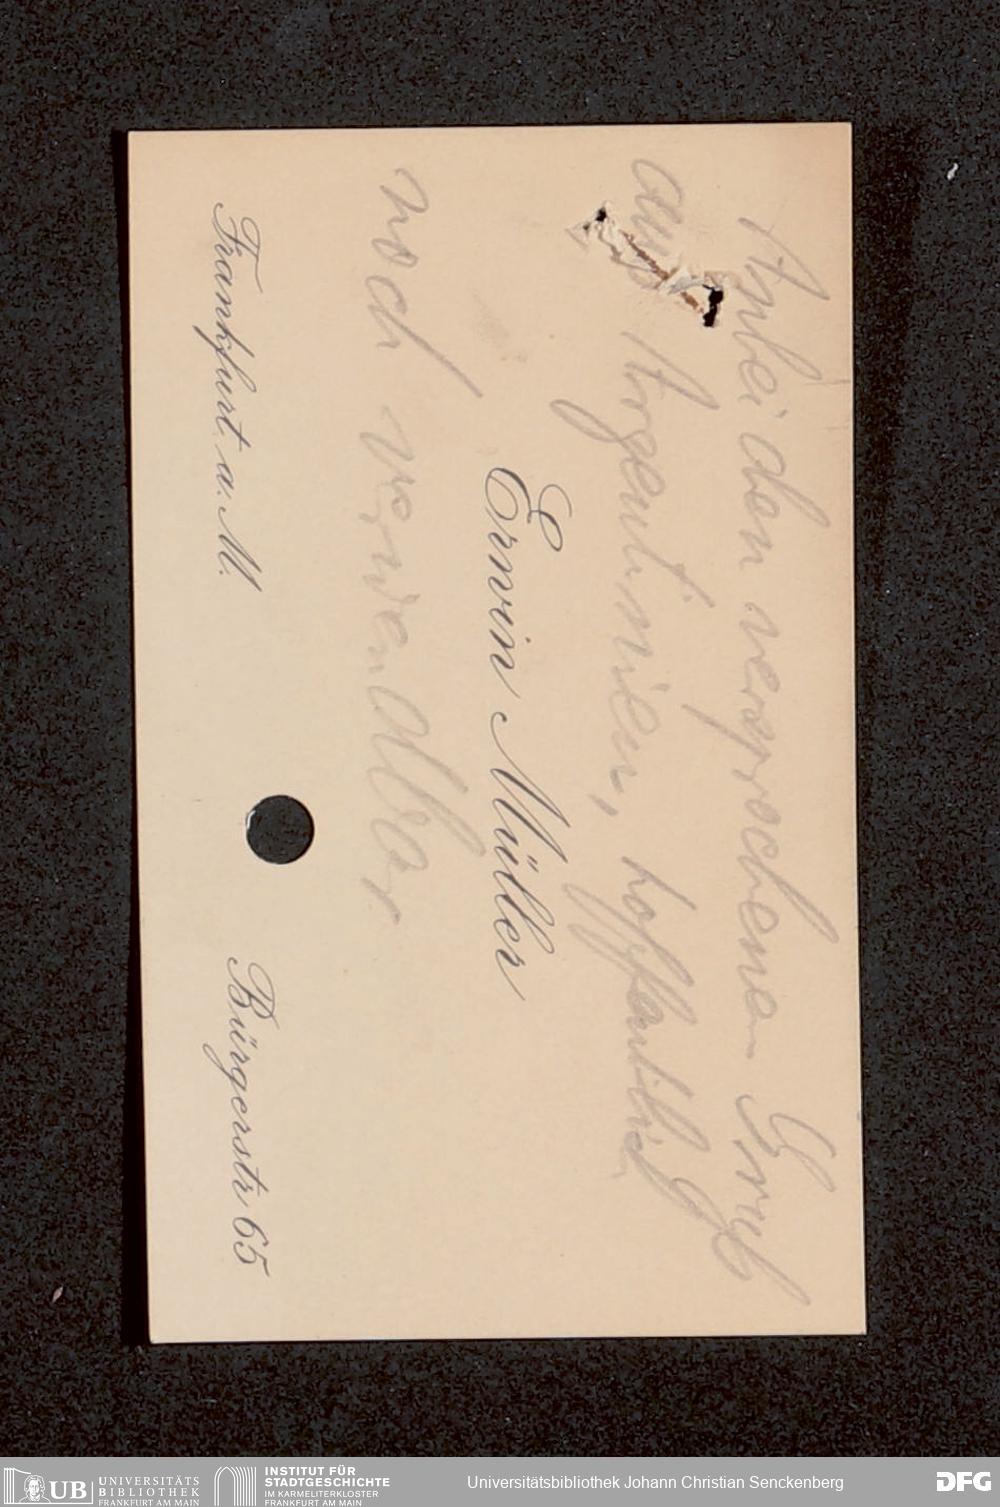 Anbei den versprochenen Gruß
aus Argentinien, hoffentlich
Erwin Müller
noch verwendbar
Frankfurt a. M. Bürgerstr 65
UB UNIVERSITÄTS
BIBLIOTHEK
FRANKFURT AM MAIN
INSTITUT FÜR
STADTGESCHICHTE
IM KARMELITERKLOSTER
FRANKFURT AM MAIN
Universitätsbibliothek Johann Christian Senckenberg
DFG